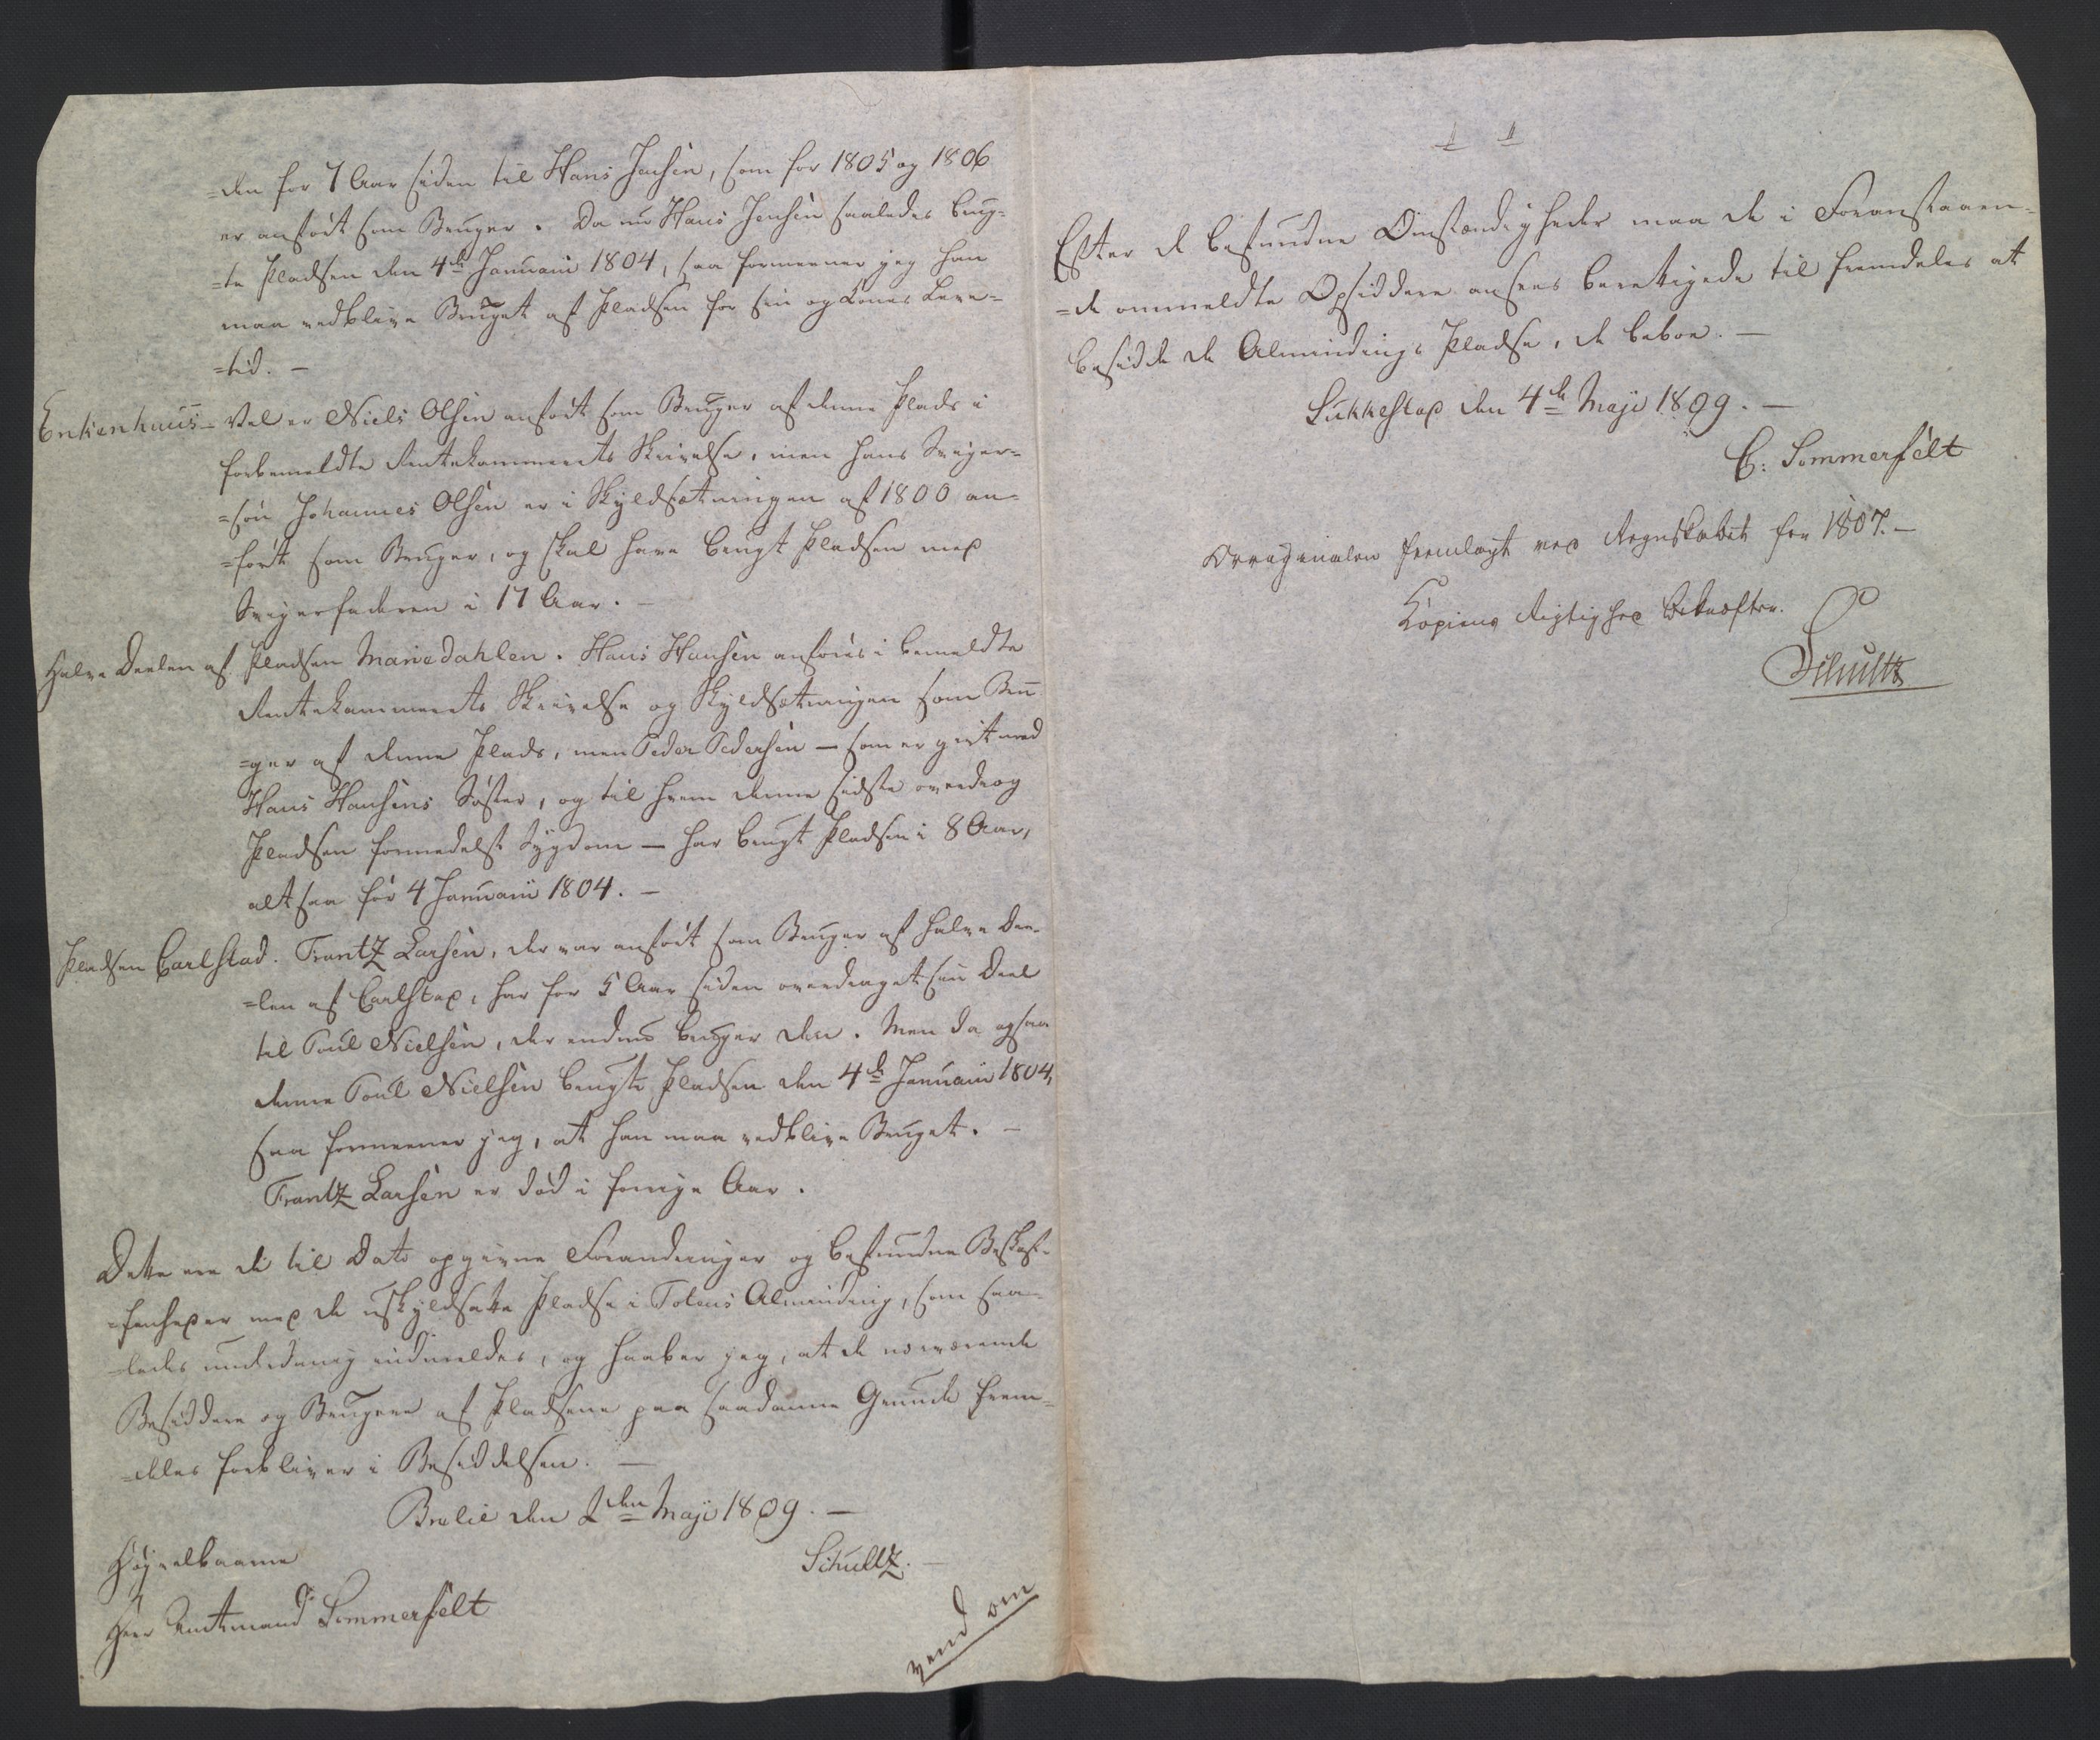 =den for 7 Aar siden til Hans Jensen, som for 1805 og 1806
er anført som Bruger. Da nu Hans Jensen saaledes brug=
=te Pladsen den 4de Januarii 1804, saa formeener jeg han
maa vedblive Bruget af Pladsen for sin og Kones Leve=
=tid. —
Enkenhuus — Vel er Niels Olsen anført som Bruger af denne Plads i
forbemeldte Rentekammerets Skrivelse, men hans Sviger=
=søn Johannes Olsen er i Skyldsætningen af 1800 an=
=ført som Bruger, og skal have brugt Pladsen med
Svigerfaderen i 17 Aar. —
Halve Deelen af Pladsen Mariedahlen. Hans Hansen anføres i bemeldte
Rentekammerets Skrivelse og Skyldsætningen som Bru
=ger af denne Plads, men Peder Pedersen — som er givt med
Hans Hansens Søster, og til hvem denne sidste overdrog
Pladsen formedelst Sygdom — har brugt Pladsen i 8 Aar,
altsaa før 4 Januarii 1804. —
Pladsen Carlstad. Frantz Larsen, der var anført som Bruger af halve Dee-
=len af Carlstad, har for 5 Aar siden overdraget sin Deel
til Poul Nielsen, der endnu bruger den. Men da ogsaa
denne Poul Nielsen brugte Pladsen den 4de Januarii 1804,
saa formeener jeg, at han maa vedblive Bruget. —
Frantz Larsen er død i forrige Aar.
Dette ere de til Dato opgivne Forandringer og befundne Beskaf-
=fenheder med de uskyldsatte Pladse i Totens Alminding, som saa=
=ledes underdanig indmeldes, og haaber jeg, at de nærværende
Besiddere og Brugere af Pladsene paa saadanne Grunde frem=
=deles forbliver i Besiddelsen. —
Brelie den 2den Maji 1809. —
Schultz. —
Høyvelbaarne
Herr Amtmand Sommerfelt
vend om
Efter de befundne Omstændigheder maa de i Foranstaaen=
=de ommeldte Opsiddere ansees berettigede til fremdeles at
besidde de Almindings Pladse, de beboe. —
Sukkestad den 4de Maji 1809. —
C: Sommerfelt
Orriginalen fremlagt ved Regnskabet for 1807. —
Kopiens Rigtighed bekræfter.
Schultz